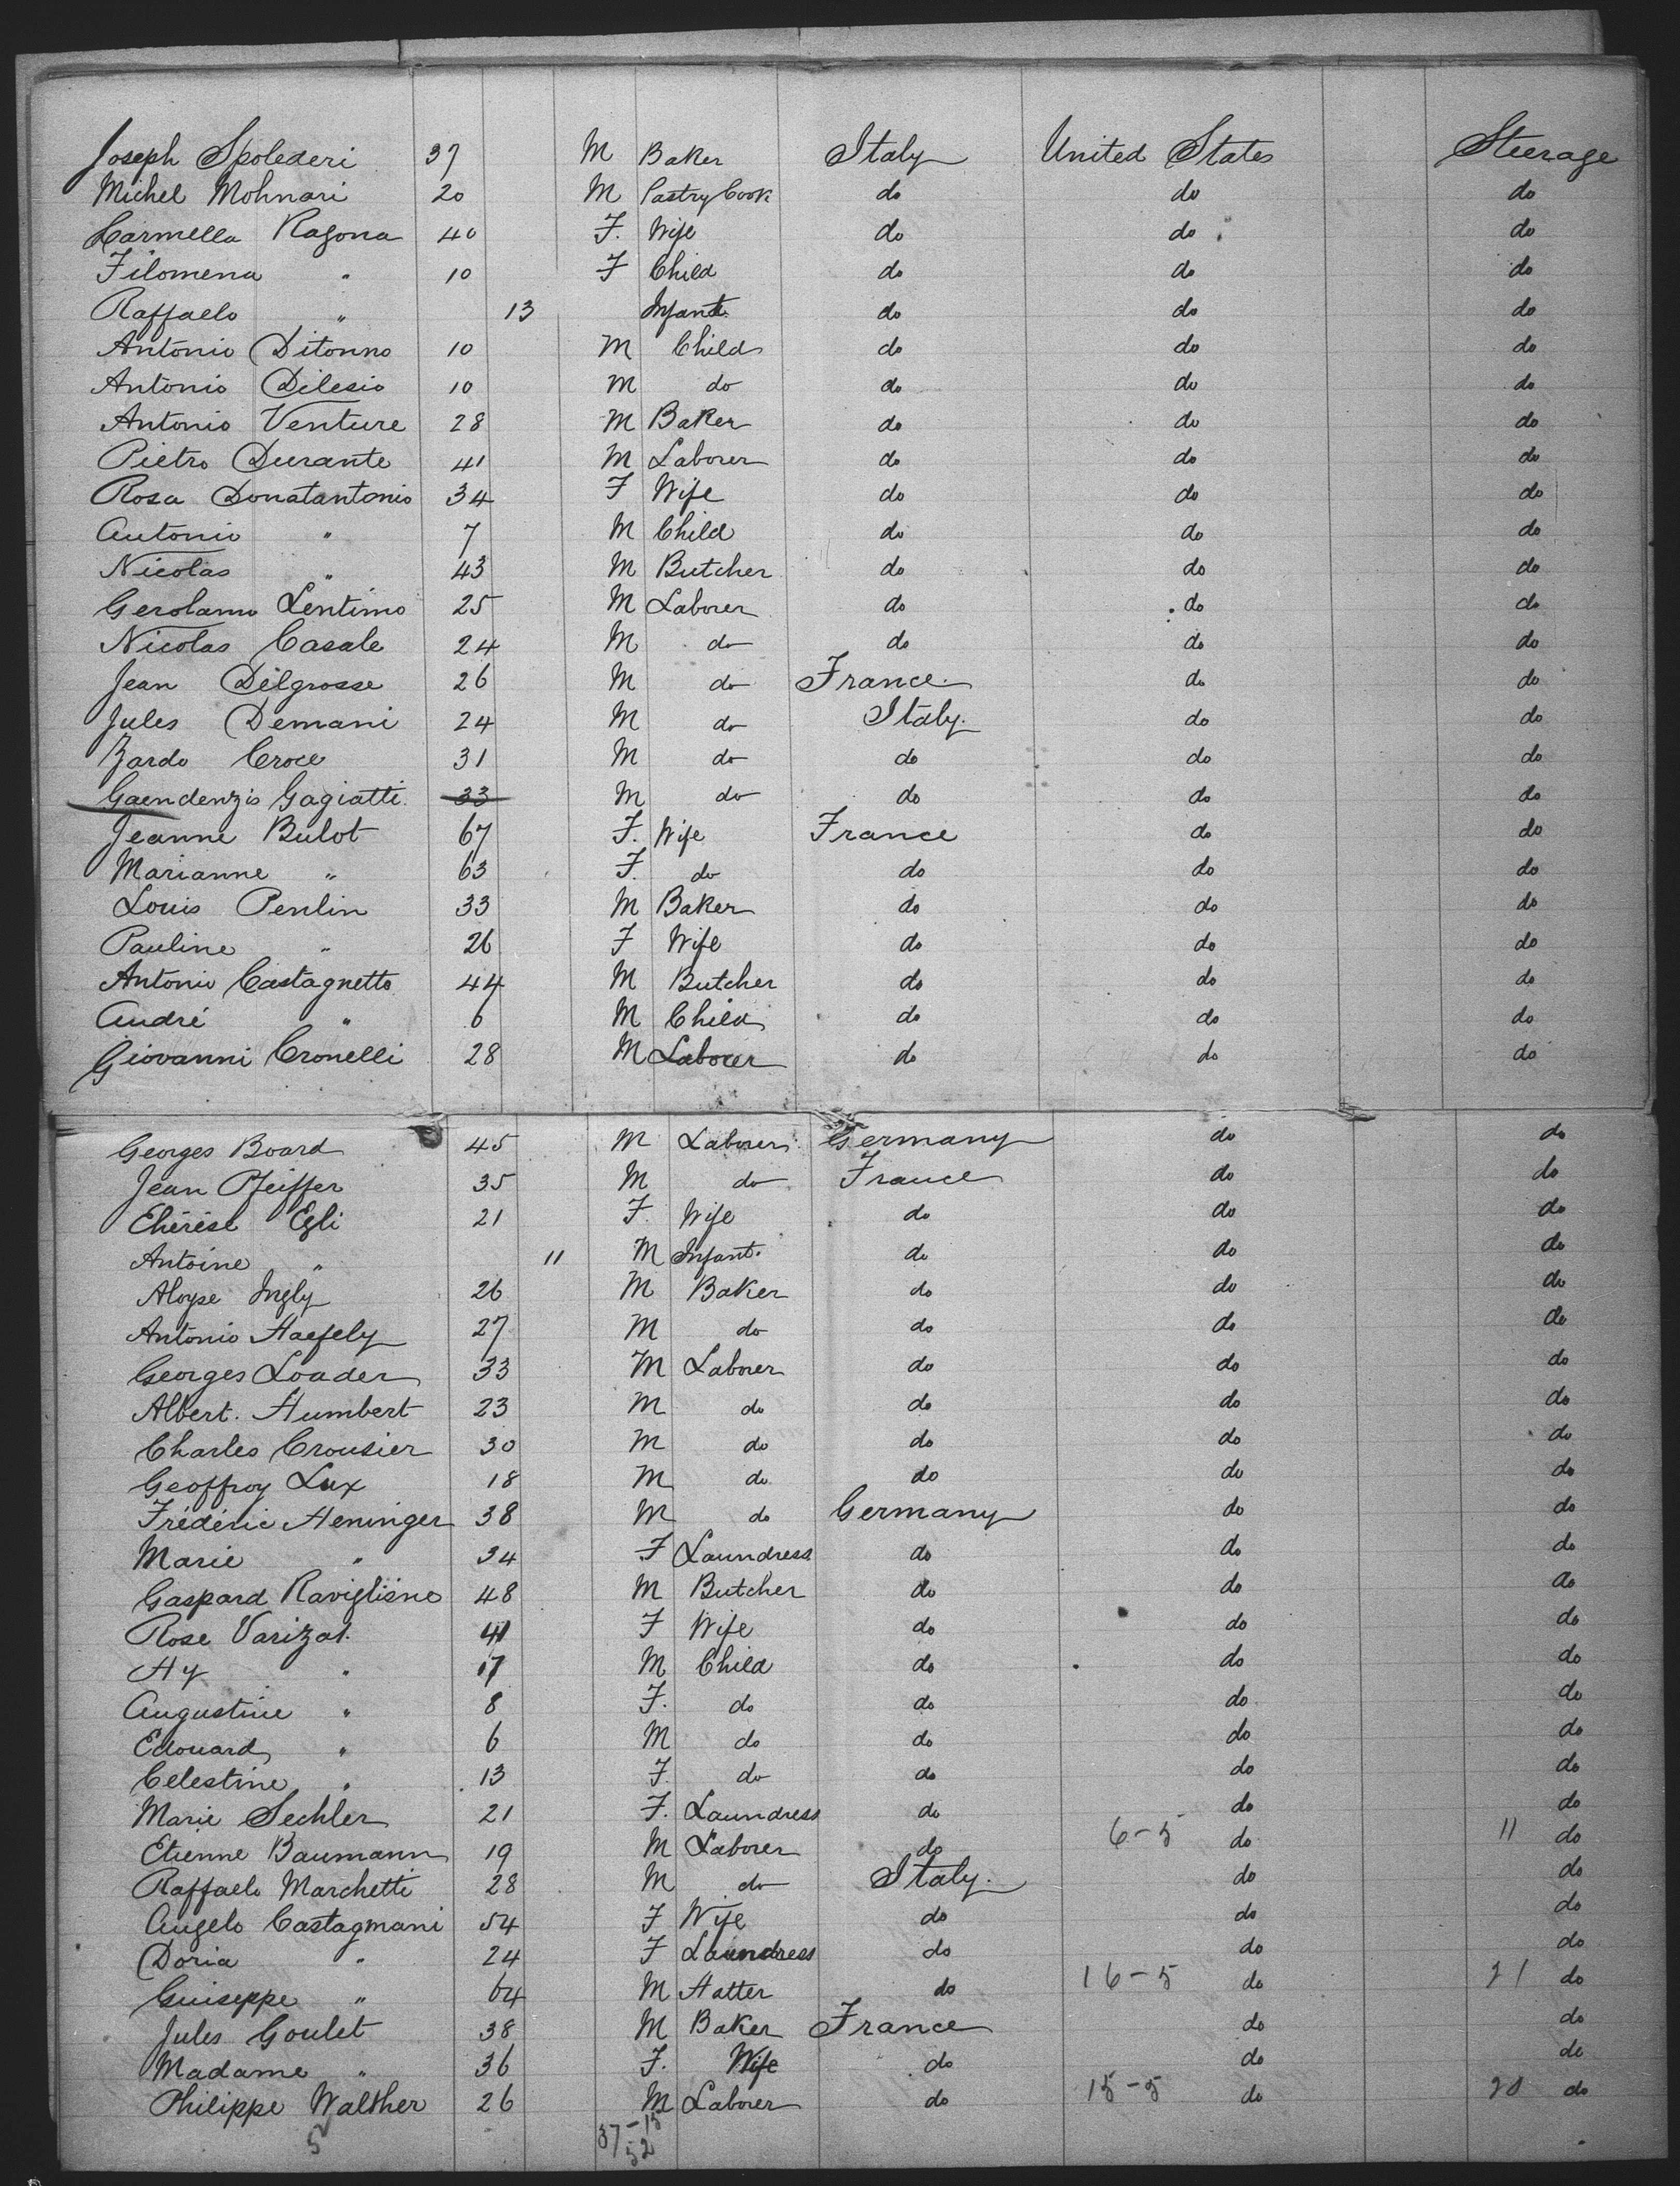 Joseph Spolederi 37 M Baker Italy United States Steerage
Michel Mohnari 20 M Pastry Cook do do do
Carmella Ragona 40 F. Wife do do do
Filomena " 10 F Child do do do
Raffaelo " 13 Infant. do do do
Antonio Ditonno 10 M Child do do do
Antonio Dilesio 10 M do do do do
Antonio Venture 28 M Baker do do do
Pietro Durante 41 M Laborer do do do
Rosa Donatantonio 34 F Wife do do do
Antonio " 7 M Child do do do
Nicolas " 43 M Butcher do do do
Gerolamo Lentimo 25 M Laborer do do do
Nicolas Casale 24 M do do do do
Jean Delgrosse 26 M do France. do do
Jules Demani 24 M do Italy. do do
Zardo Croce 31 M do do do do
Gaendenzio Gagiatti. 33 M do do do do
Jeanne Bulot 67 F. Wife France do do
Marianne " 63 F. do do do do
Louis Penlin 33 M Baker do do do
Pauline " 26 F Wife do do do
Antonio Castagnetto 44 M Butcher do do do
André " 6 M Child do do do
Giovanni Cronelli 28 M Laborer do do do
Georges Board 45 M Laborer Germany do do
Jean Pfeiffer 35 M do France do do
Thérèse Egli 21 F. Wife do do do
Antoine " 11 M Infant. do do do
Aloyse Ingly 26 M Baker do do do
Antonio Haefely 27 M do do do do
Georges Loader 33 M Laborer do do do
Albert. Humbert 23 M do do do do
Charles Crousier 30 M do do do do
Geoffroy Lux 18 M do do do do
Frédéric Heninger 38 M do Germany do do
Marie " 34 F Laundress do do do
Gaspard Ravigliono 48 M Butcher do do do
Rose Varizat. 41 F Wife do do do
Hy " 17 M Child do do do
Augustine " 8 F. do do do do
Edouard " 6 M do do do do
Celestine " 13 F. do do do do
Marie Sechler 21 F. Laundress do do do
Etienne Baumann 19 M Laborer do 6-5 do 11 do
Raffaelo Marchetti 28 M do Italy. do do
Angelo Castagmani 54 F Wife do do do
Doria " 24 F Laundress do do do
Guiseppe " 64 M Hatter do 16-5 do 21 do
Jules Goulet 38 M Baker France do do
Madame " 36 F. Wife do do do
Philippe Walther 26 M Laborer do 15-5 do 20 do
52 37-15
52